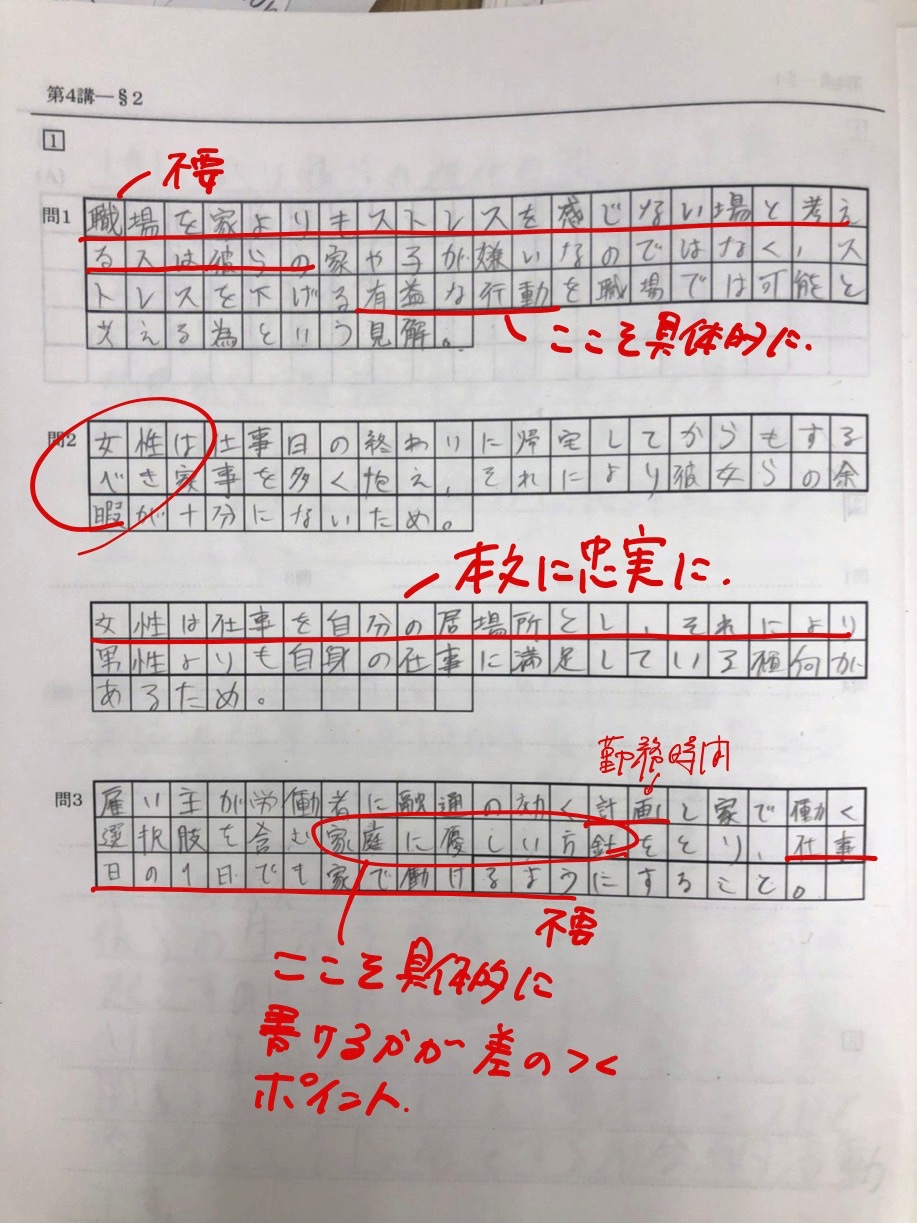 第4講―§2
1
不要
問1
職場を家よりもストレスを感じない場と考え
る人は彼らの家や子が嫌いなのではなく、ス
トレスを下げる有益な行動を職場では可能と
考える為という見解。
ここを具体的に.
問2
女性は仕事日の終わりに帰宅してからもする
べき家事を多く抱え、それにより彼女らの余
暇が十分にないため。
本文に忠実に.
女性は仕事を自分の居場所とし、それにより
男性よりも自身の仕事に満足している
あるため。
勤務時間
問3
雇い主が労働者に融通の効く計画と家で働く
選択肢を含む家庭に優しい方針をとり、仕事
日の1日でも家で働けるようにすること。
不要
ここを具体的に
書けるかが差のつく
ポイント.